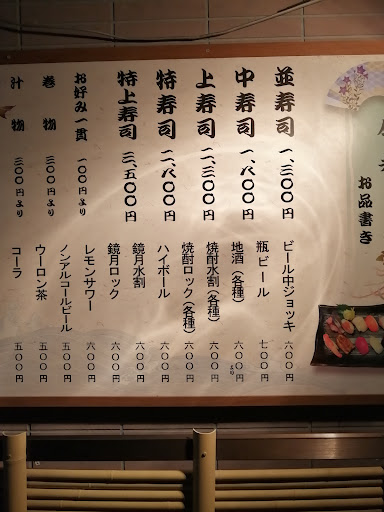 お品書き
並寿司 一、三〇〇円
中寿司 一、八〇〇円
上寿司 二、三〇〇円
特寿司 二、八〇〇円
特上寿司 三、五〇〇円
お好み一貫 一〇〇円より
巻物 三〇〇円より
汁物 三〇〇円より
ビール中ジョッキ 六〇〇円
瓶ビール 七〇〇円
地酒(各種) 六〇〇円より
焼酎水割(各種) 六〇〇円
焼酎ロック(各種) 六〇〇円
ハイボール 六〇〇円
鏡月水割 六〇〇円
鏡月ロック 六〇〇円
レモンサワー 六〇〇円
ノンアルコールビール 五〇〇円
ウーロン茶 五〇〇円
コーラ 五〇〇円